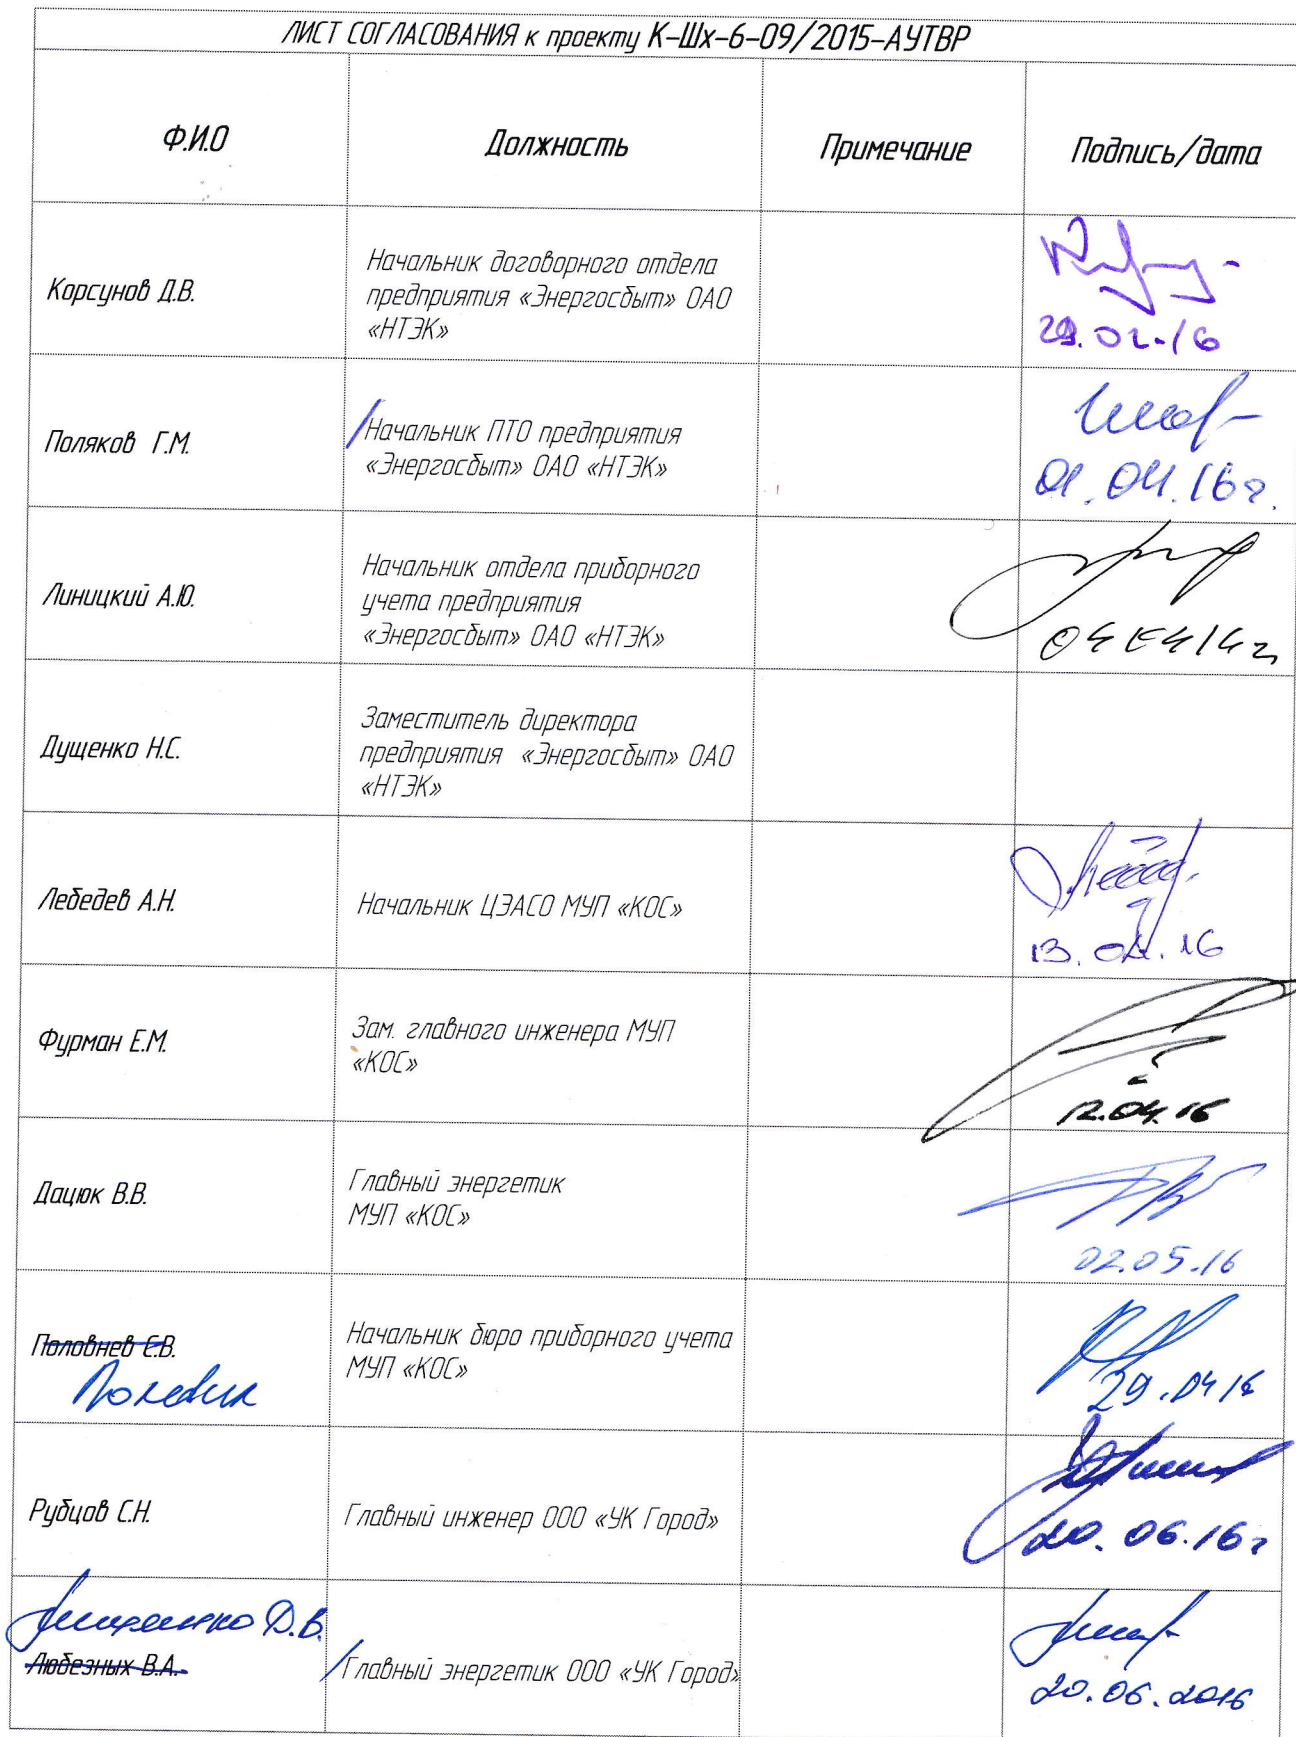 ЛИСТ СОГЛАСОВАНИЯ к проекту К-Шх-6-09/2015-АУТВР
Ф.И.О
Должность
Примечание
Подпись/дата
Корсунов Д.В.
Начальник договорного отдела
предприятия «Энергосбыт» ОАО
«НТЭК»
29.02.16
Поляков Г.М.
Начальник ПТО предприятия
«Энергосбыт» ОАО «НТЭК»
01.04.16г.
Линицкий А.Ю.
Начальник отдела приборного
учета предприятия
«Энергосбыт» ОАО «НТЭК»
Дущенко Н.С.
Заместитель директора
предприятия «Энергосбыт» ОАО
«НТЭК»
Лебедев А.Н.
Начальник ЦЭАСО МУП «КОС»
13.04.16
Фурман Е.М.
Зам. главного инженера МУП
«КОС»
12.04.16
Дацюк В.В.
Главный энергетик
МУП «КОС»
02.05.16
Половнев С.В.
Начальник бюро приборного учета
МУП «КОС»
29.04 16
Рубцов С.Н.
Главный инженер ООО «УК Город»
20.06.16г
Д.В.
Любезных В.А.
Главный энергетик ООО «УК Город»
20.06.2016